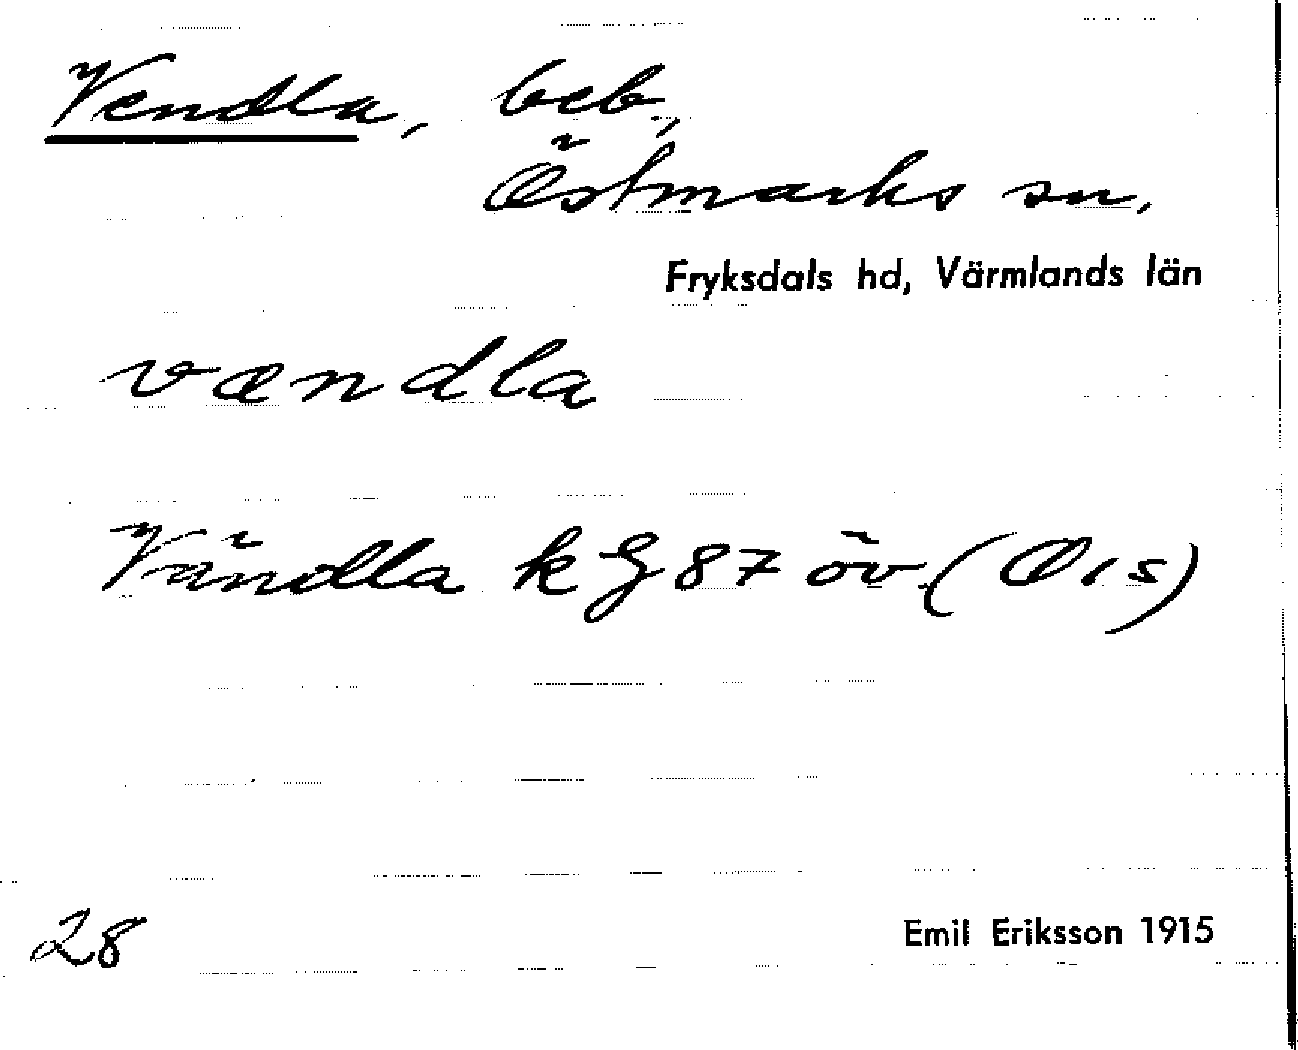 Vendla, beb.,
Östmarks sn.
Fryksdals hd, Värmlands län
vændla
Vändla k G 87 öv (Ö 1 s)
28
Emil Eriksson 1915